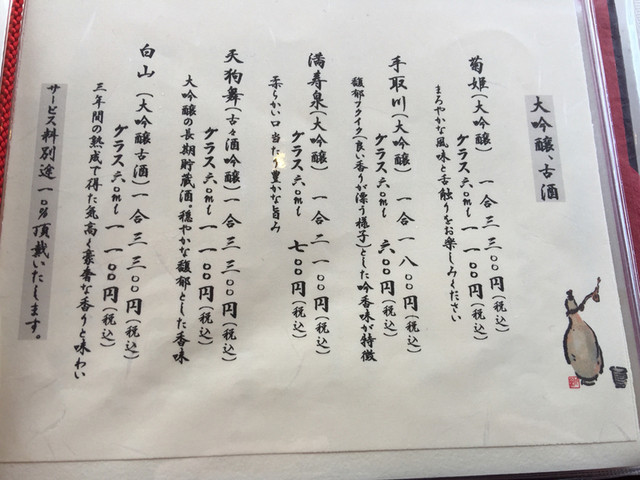 大吟醸、古酒
菊姫(大吟醸) 一合 三三〇〇円(税込)
グラス六〇ml 一一〇〇円(税込)
まろやかな風味と舌触りをお楽しみください
手取川(大吟醸) 一合 一八〇〇円(税込)
グラス六〇ml 六〇〇円(税込)
馥郁フクイク(良い香りが漂う様子)とした吟香味が特徴
満寿泉(大吟醸) 一合 二一〇〇円(税込)
グラス六〇ml 七〇〇円(税込)
柔らかい口当たり豊かな旨み
天狗舞(古々酒吟醸) 一合 三三〇〇円(税込)
グラス六〇ml 一一〇〇円(税込)
大吟醸の長期貯蔵酒。穏やかな馥郁とした香味
白山(大吟醸古酒) 一合 三三〇〇円(税込)
グラス六〇ml 一一〇〇円(税込)
三年間の熟成で得た気高く豪奢な香りと味わい
サービス料別途一〇%頂戴いたします。